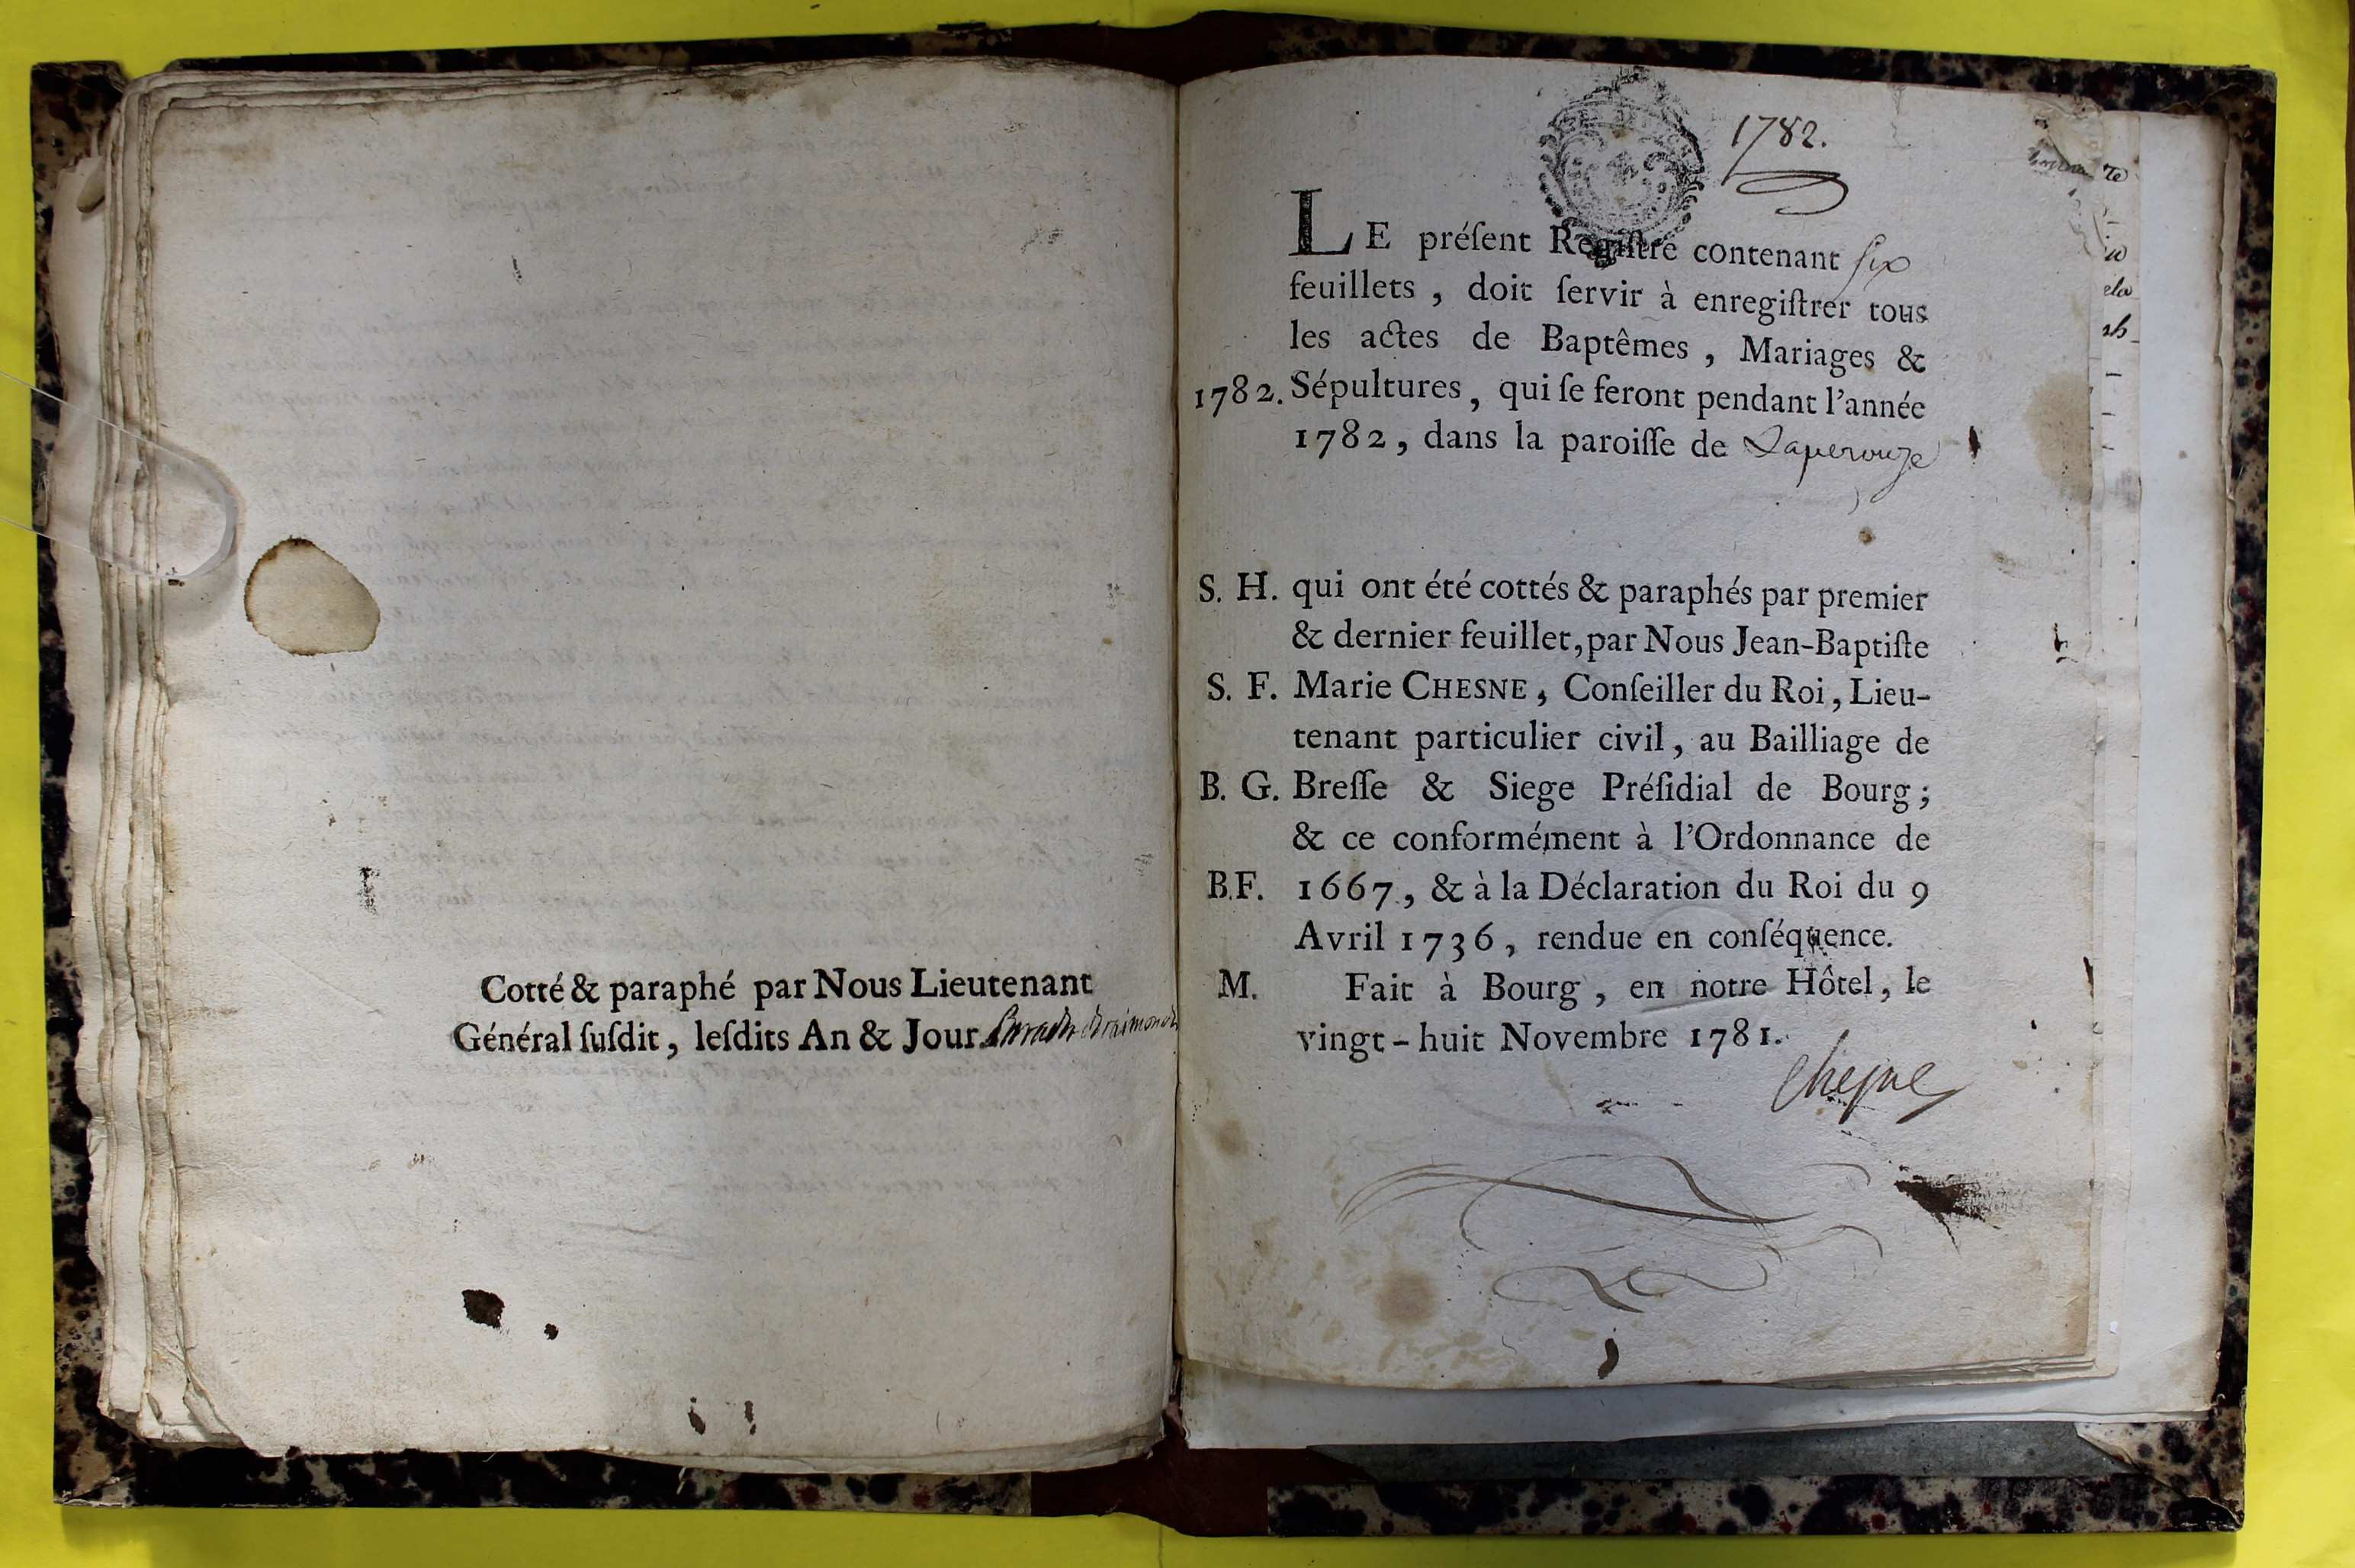 Cotté & paraphé par Nous Lieutenant
Général ſuſdit, leſdits An & Jour.
1782.
LE préſent Regiſtre contenant ſix
feuillets, doit ſervir à enregiſtrer tous
les actes de Baptêmes, Mariages &
1782. Sépultures, qui ſe feront pendant l'année
1782, dans la paroiſſe de Laperouze
S. H. qui ont été cottés & paraphés par premier
& dernier feuillet, par Nous Jean-Baptiſte
S. F. Marie CHESNE, Conſeiller du Roi, Lieu-
tenant particulier civil, au Bailliage de
B. G. Breſſe & Siege Préſidial de Bourg;
& ce conformément à l'Ordonnance de
B.F. 1667, & à la Déclaration du Roi du 9
Avril 1736, rendue en conſéquence.
M. Fait à Bourg, en notre Hôtel, le
vingt-huit Novembre 1781.
Cheſne